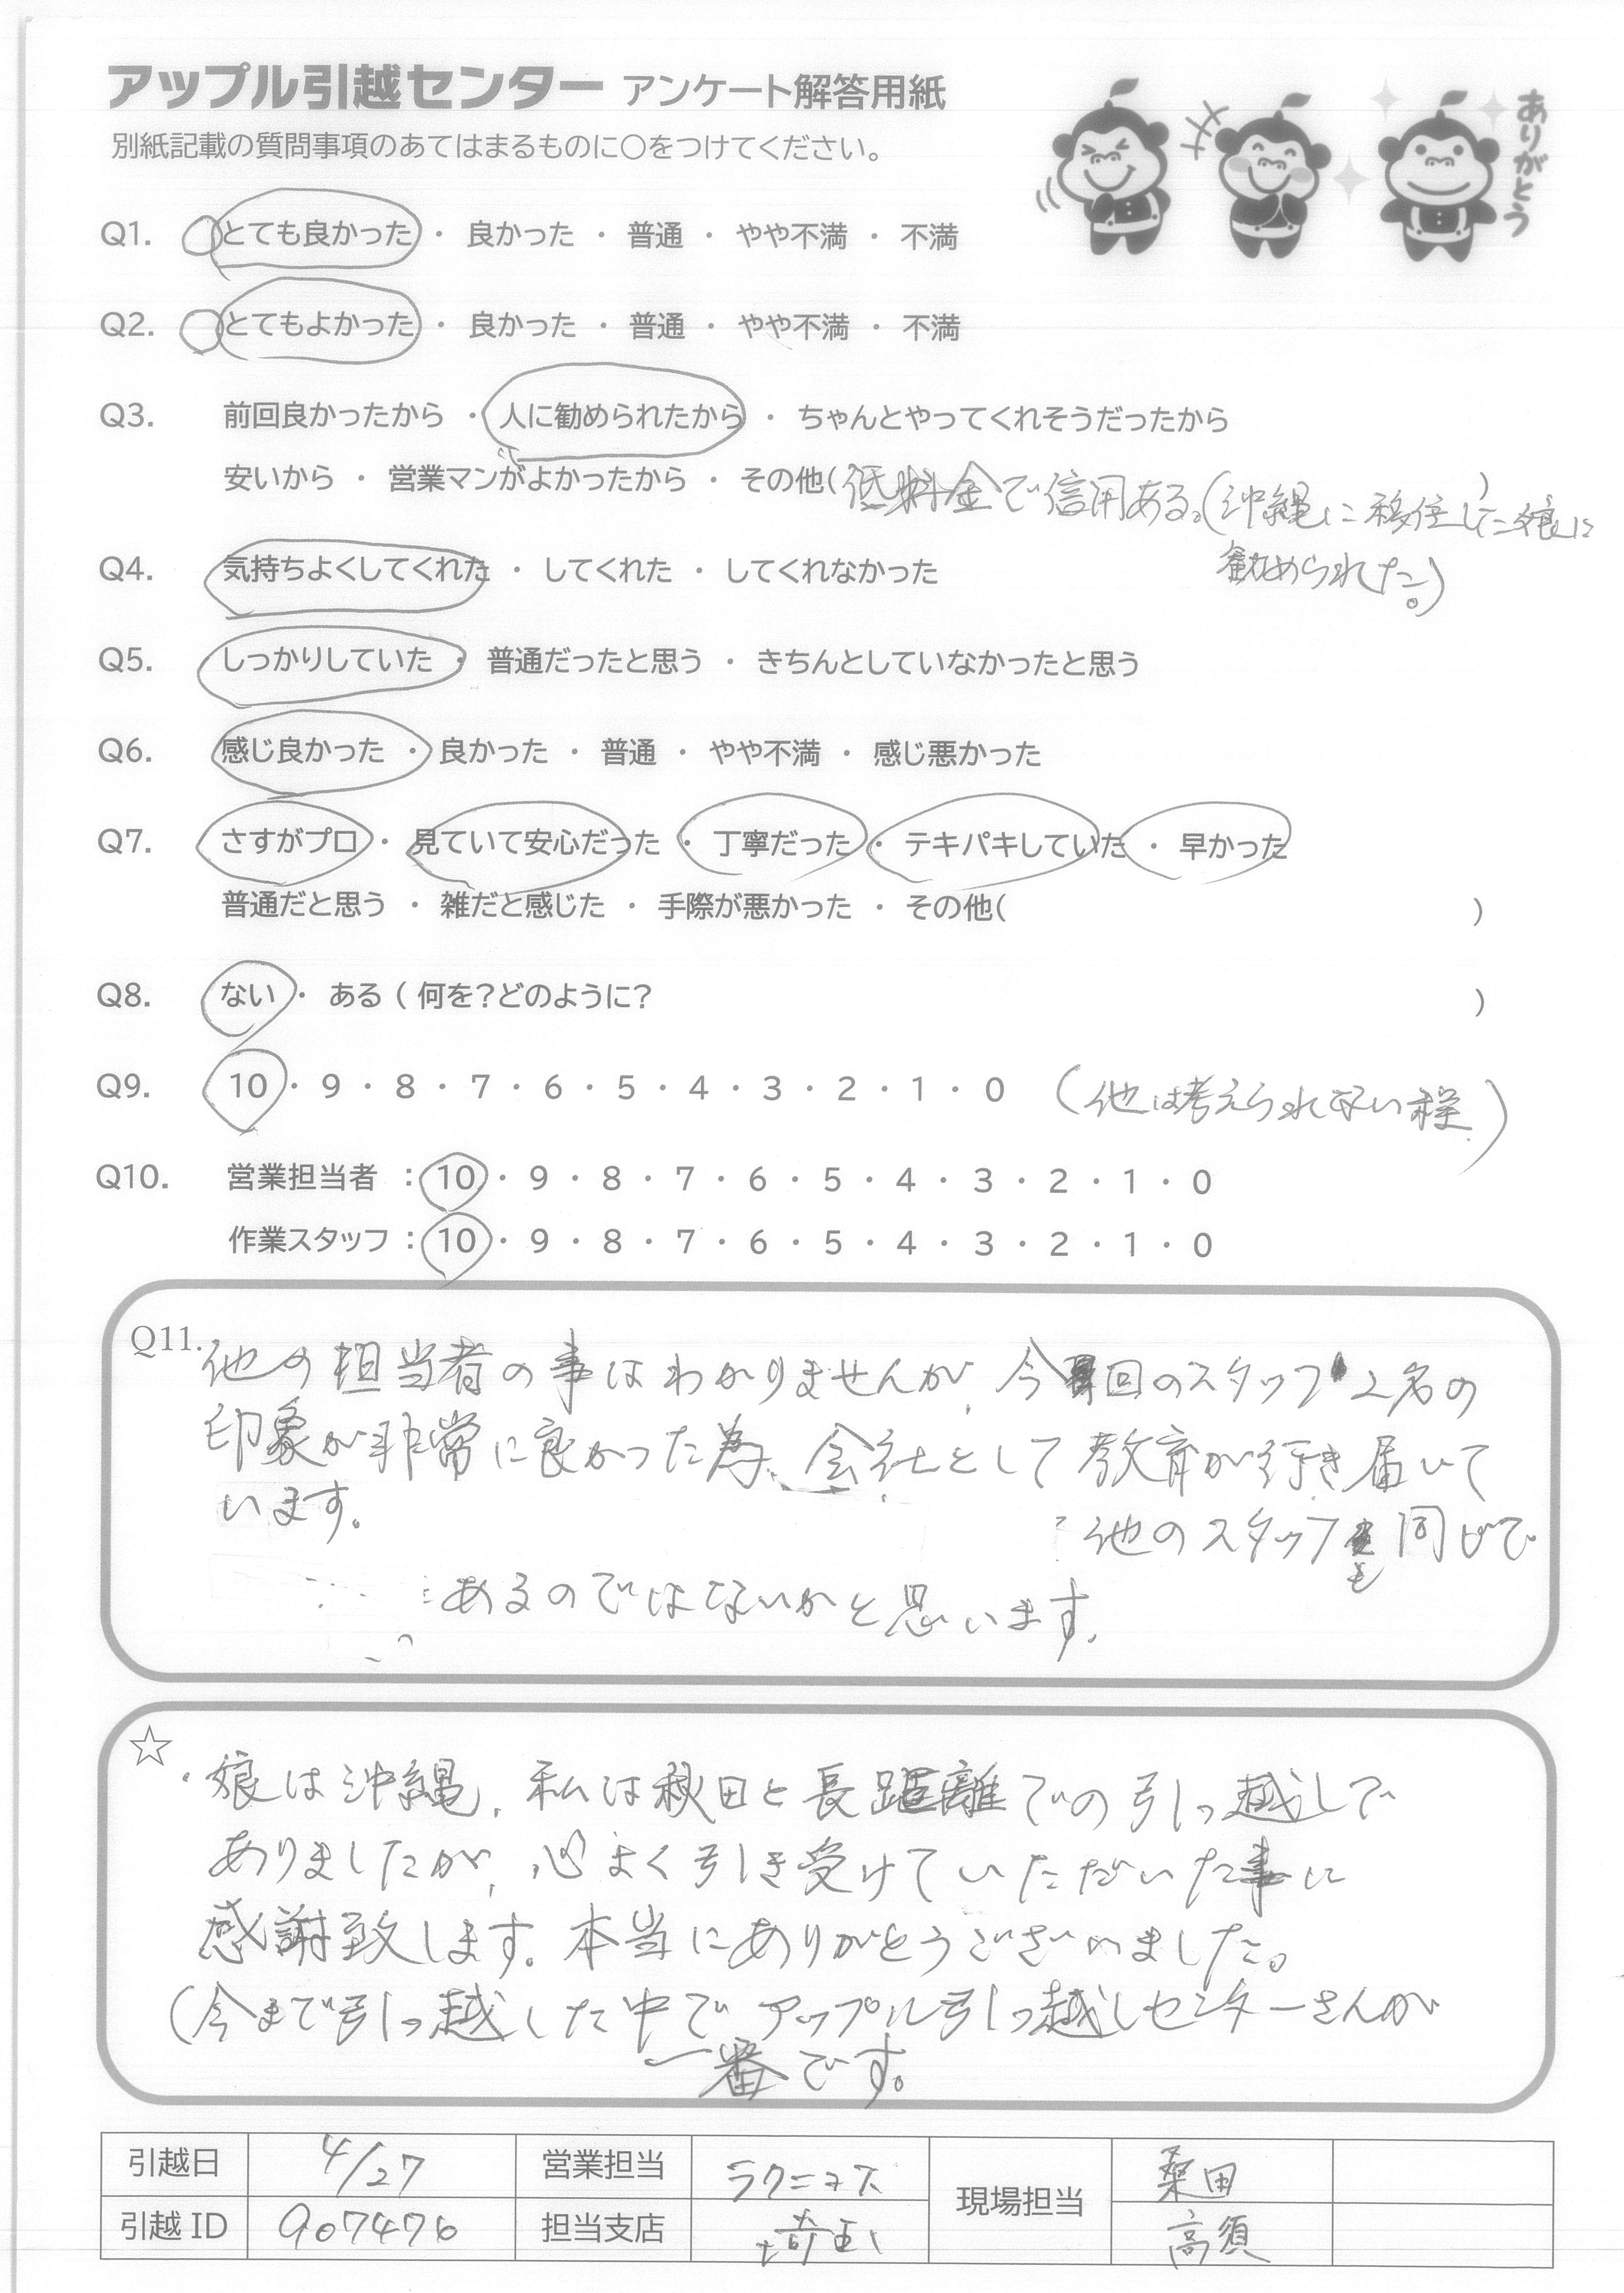 アップル引越センター アンケート解答用紙
別紙記載の質問事項のあてはまるものに○をつけてください。
ありがとう
Q1. とても良かった ・ 良かった ・ 普通 ・ やや不満 ・ 不満
Q2. とてもよかった ・ 良かった ・ 普通 ・ やや不満 ・ 不満
Q3. 前回良かったから ・ 人に勧められたから ・ ちゃんとやってくれそうだったから
安いから ・ 営業マンがよかったから ・ その他( 低料金で信用ある。(沖縄に移住した娘に )
勧められた。)
Q4. 気持ちよくしてくれた ・ してくれた ・ してくれなかった
Q5. しっかりしていた ・ 普通だったと思う ・ きちんとしていなかったと思う
Q6. 感じ良かった ・ 良かった ・ 普通 ・ やや不満 ・ 感じ悪かった
Q7. さすがプロ ・ 見ていて安心だった ・ 丁寧だった ・ テキパキしていた ・ 早かった
普通だと思う ・ 雑だと感じた ・ 手際が悪かった ・ その他( )
Q8. ない ・ ある ( 何を?どのように? )
Q9. 10 ・ 9 ・ 8 ・ 7 ・ 6 ・ 5 ・ 4 ・ 3 ・ 2 ・ 1 ・ 0 (他は考えられない程)
Q10. 営業担当者 : 10 ・ 9 ・ 8 ・ 7 ・ 6 ・ 5 ・ 4 ・ 3 ・ 2 ・ 1 ・ 0
作業スタッフ : 10 ・ 9 ・ 8 ・ 7 ・ 6 ・ 5 ・ 4 ・ 3 ・ 2 ・ 1 ・ 0
Q11. 他の担当者の事はわかりませんが、今回のスタッフ2名の
印象が非常に良かった為、会社として教育が行き届いて
います。
他のスタッフも同じで
あるのではないかと思います。
☆ ・娘は沖縄、私は秋田と長距離での引っ越しで
ありましたが、心よく引き受けていただいた事に
感謝致します。本当にありがとうございました。
(今まで引っ越した中でアップル引っ越しセンターさんが
一番です。
引越日 4/27 営業担当 ラクニコス 現場担当 桑田
引越 ID 907476 担当支店 埼玉 高須